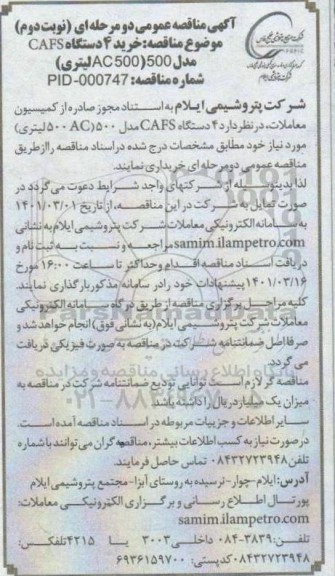 آگهی مناقصه عمومی دو مرحله ای (نوبت دوم)
موضوع مناقصه: خرید ۴ دستگاه CAFS
مدل 500(AC500 لیتری)
شماره مناقصه: PID-000747
شرکت پتروشیمی ایلام به استناد مجوز صادره از کمیسیون
معاملات، در نظر دارد ۴ دستگاه CAFS مدل ۵۰۰(AC ۵۰۰ لیتری)
مورد نیاز خود مطابق مشخصات درج شده در اسناد مناقصه را از طریق
مناقصه عمومی دو مرحله ای خریداری نمایند.
لذا بدینوسیله از شرکتهای واجد شرایط دعوت می گردد در
صورت تمایل به شرکت در این مناقصه، از تاریخ ۱۴۰۱/۰۳/۰۱
به سامانه الکترونیکی معاملات شرکت پتروشیمی ایلام به نشانی
samim.ilampetro.com مراجعه و نسبت به ثبت نام و
دریافت اسناد مناقصه اقدام و حداکثر تا ساعت ۱۶:۰۰ مورخ
۱۴۰۱/۰۳/۱۶ پیشنهادات خود را در سامانه مذکور بارگذاری نمایند.
کلیه مراحل برگزاری مناقصه از طریق درگاه سامانه الکترونیکی
معاملات شرکت پتروشیمی ایلام (به نشانی فوق) انجام خواهد شد و
صرفا اصل ضمانتنامه شرکت در مناقصه به صورت فیزیکی دریافت
می گردد.
مناقصه گر لازم است توانایی تودیع ضمانتنامه شرکت در مناقصه به
میزان یک میلیارد ریال را داشته باشد.
سایر اطلاعات و جزییات مربوطه در اسناد مناقصه آمده است.
در صورت نیاز به کسب اطلاعات بیشتر، مناقصه گران می توانند با شماره
تلفن ۰۸۴۳۲۷۲۳۹۴۸ تماس حاصل فرمایند.
آدرس: ایلام-چوار-نرسیده به روستای آبزا-مجتمع پتروشیمی ایلام
پورتال اطلاع رسانی و برگزاری الکترونیکی معاملات:
samim.ilampetro.com
تلفن: ۳۸۳۹-۰۸۴ داخلی ۳۰۰۳ یا ۴۲۱۵ تلفکس:
۰۸۴۳۲۷۲۳۹۴۸ کدپستی: ۶۹۳۶۱۵۹۷۰۰